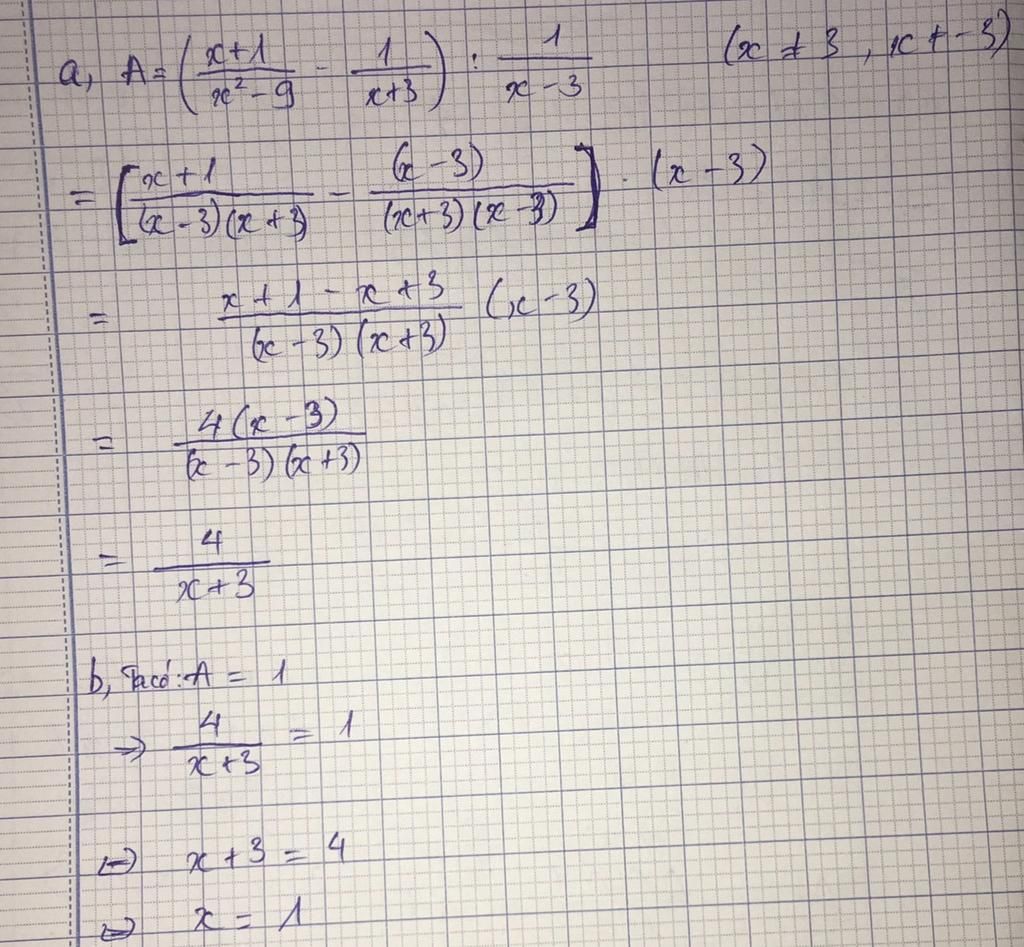 a, A = ( (x+1)/(x² - 9) - 1/(x+3) ) : 1/(x - 3) (x ≠ 3, x ≠ -3)
= [ (x + 1)/((x - 3)(x + 3)) - (x - 3)/((x+3)(x - 3)) ] . (x - 3)
= (x + 1 - x + 3)/((x - 3)(x + 3)) (x - 3)
= 4(x - 3)/((x - 3)(x+3))
= 4/(x+3)
b, Ta có: A = 1
⇒ 4/(x+3) = 1
⇔ x + 3 = 4
⇔ x = 1